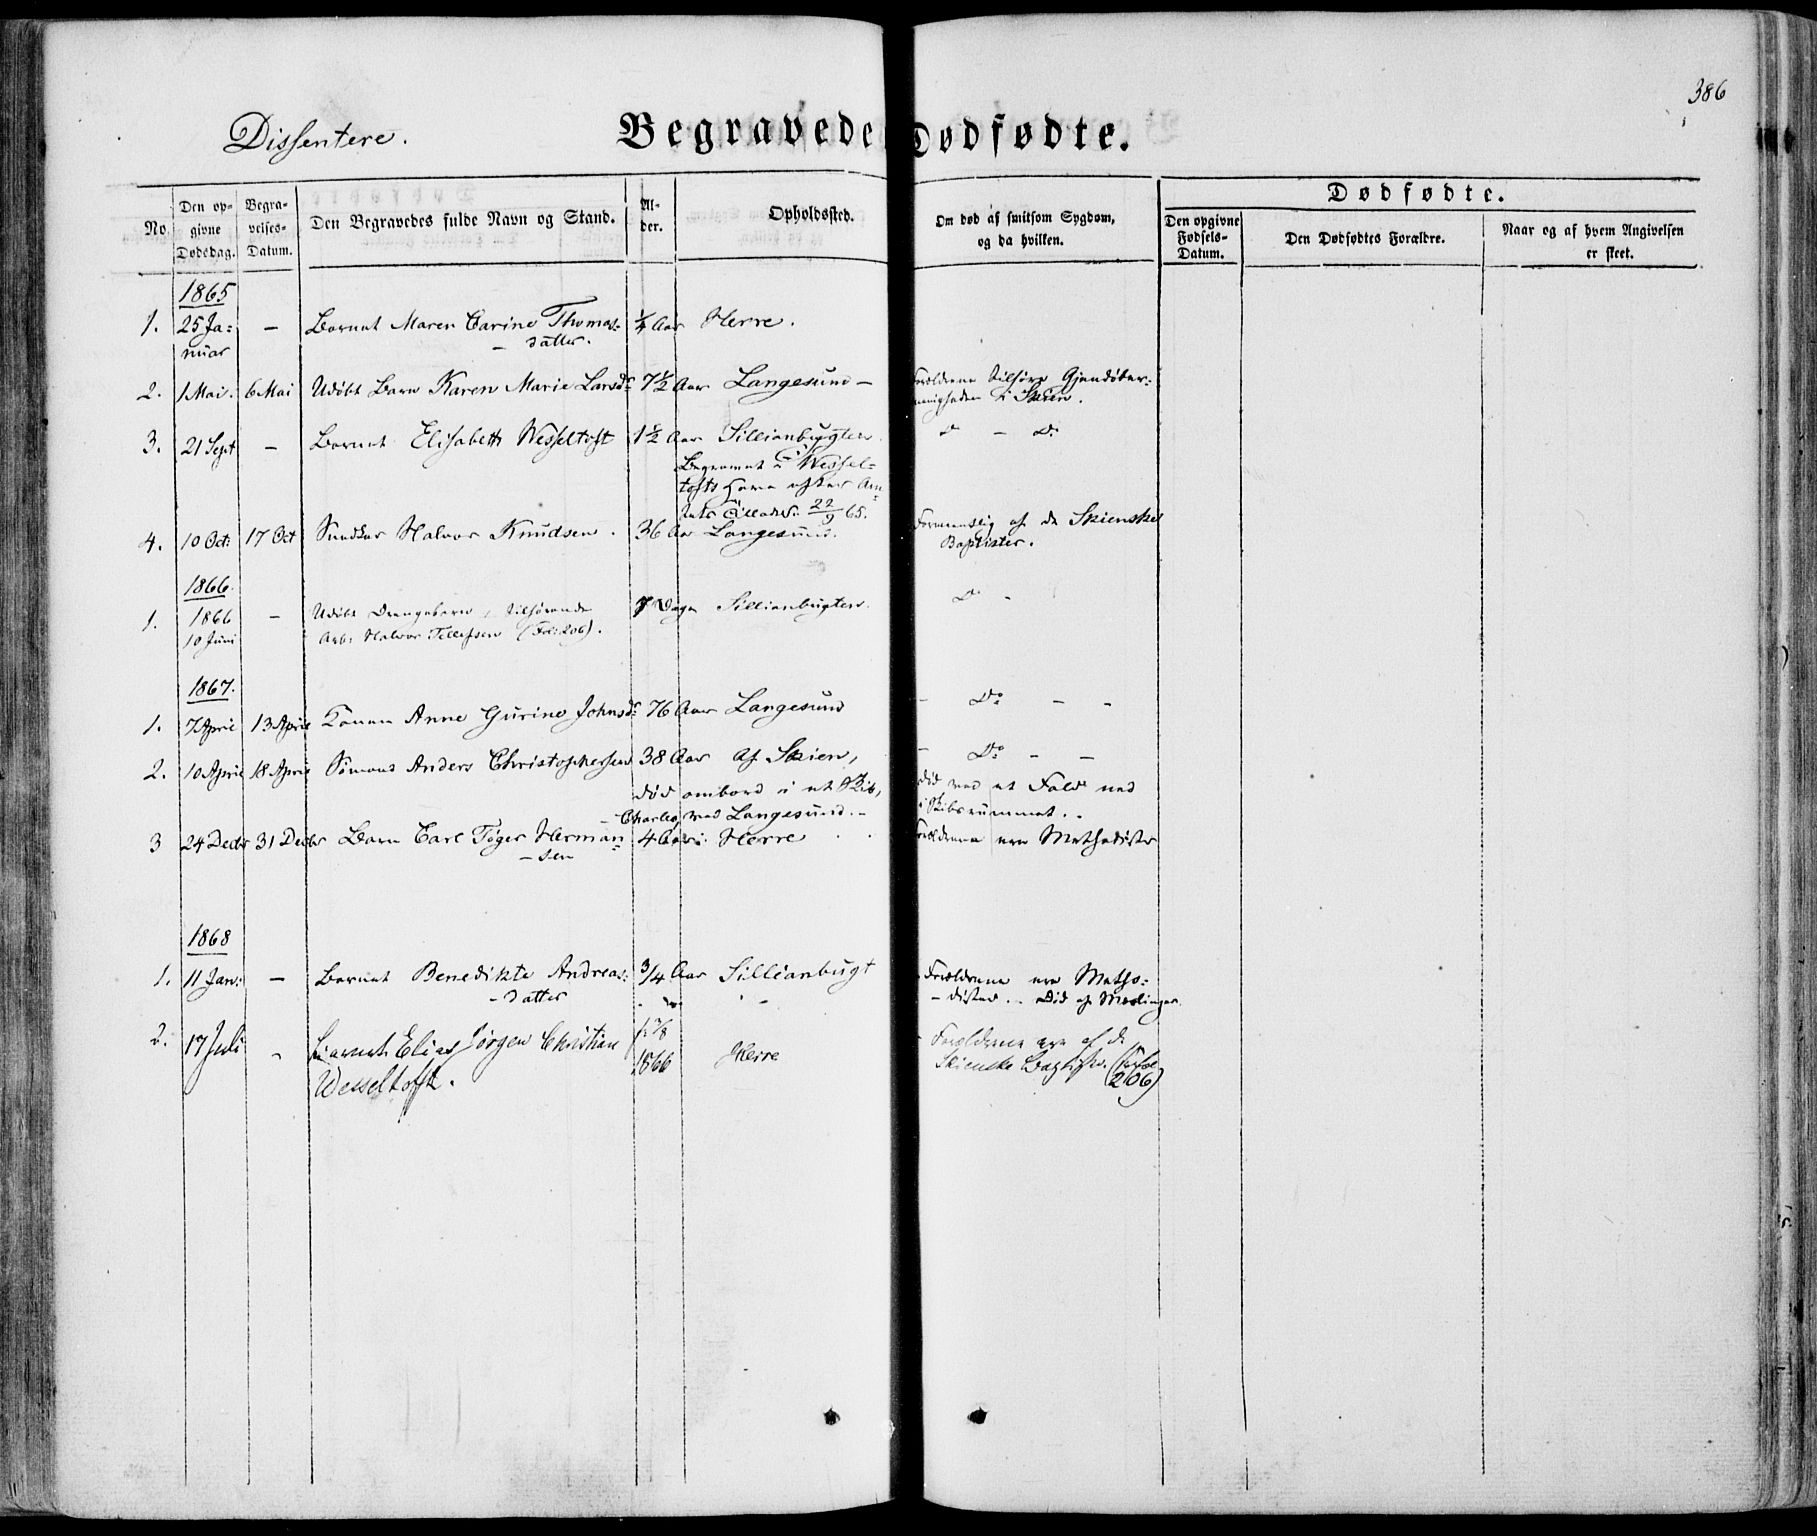 386
Dissentere.
Begravede Dødfødte.
Dødfødte.
No.
Den op-
givne
Dødsdag.
Begra-
velses-
Datum.
Den Begravedes fulde Navn og Stand.
Al-
der.
Opholdssted.
Om død af smitsom Sygdom,
og da hvilken.
Den opgivne
Fødsels-
Datum.
Den Dødfødtes Forældre.
Naar og af hvem Angivelsen
er skeet.
1865
1. 25 Ja= — Barnet Maren Carine Thomas= ¼ Aar Herre.
nuar — datter.
2. 1 Mai. 6 Mai Udøbt Barn Karen Marie Larsdr 7½ Aar Langesund — Forældrene tilhøre Gjendøber=
menigheden i Skien.
3. 21 Sept — Barnet Elisabeth Wesseltoft 1½ Aar Sillianbugten. d — Do
Begravet i Wessel=
tofts Have efter Am=
22/9 65.
4. 10 Oct: 17 Oct Halvor Knudsen. 36 Aar Langesund. Formentlig af de Skienske
Baptister.
1866.
1. 1866 — Udøbt Drengebarn, tilhørende 7 Dage Sillianbugten. Do -
10 Juni Arb: Halvor Tellefsen (Fol: 206).
1867.
1. 7 April 13 April Konen Anne Gurine Johnsdr 76 Aar Langesund — Do — —
2. 10 April 18 April Sømand Anders Christophersen 38 Aar Af Skien, — Do — —
død ombord i et Skib, død ved et Fald ned
Charles, ved Langesund. — i Skibsrummet. .
3 24 Decbr 31 Decbr Barn Carl Tøger Herman= 4 Aar Herre Forældrene ere Methodister
— sen
1868
1. 11 Jan: — Barnet Benedikte Andreas= ¾ Aar Sillianbugt Forældrene ere Metho=
— datter — dister. . Død af Meslinger
2. 17 Juli - Barnet Elias Jørgen Christian f. 3/8 — Forældrene ere af de
Wesseltoft. 1866 Herre Skienske Baptister. (
206)